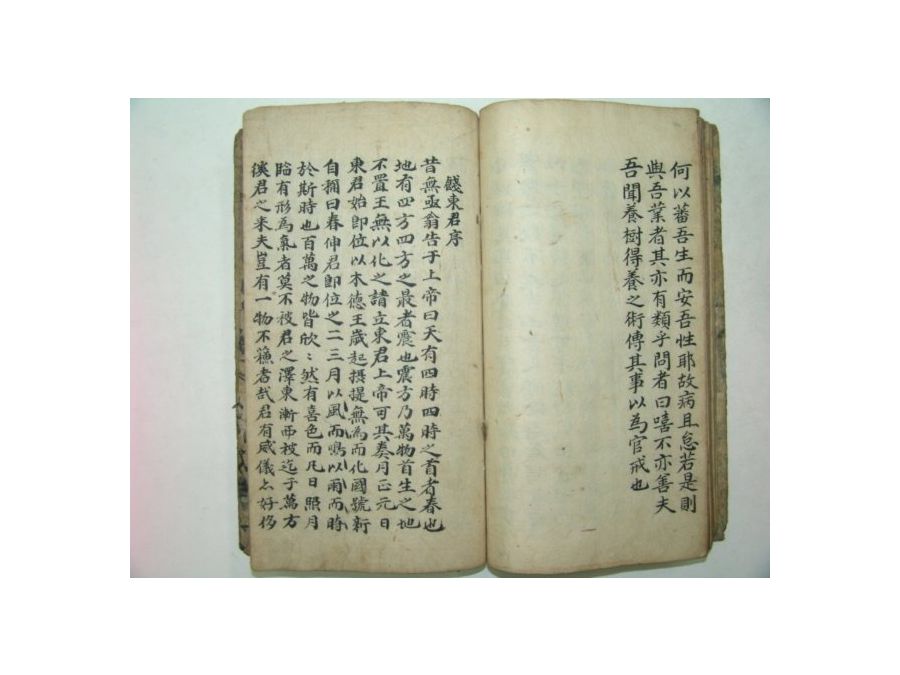 何以蕃吾生而安吾性耶故病且怠若是則
與吾業者其亦有類乎問者曰嘻不亦善夫
吾聞養樹得養之術傳其事以為官戒也
餞東君序
昔無亟翁告于上帝曰天有四時四時之首者春也
地有四方四方之最者震也震方乃萬物首生之地
不置王無以化之請立東君上帝可其奏月正元日
東君始即位以木德王歲起摂提無為而化國號新
自稱曰春伸君即位之二三月以風而鳴以雨而時
於斯時也百萬之物皆欣〻然有喜色而凡日照月
臨有形為氣者莫不被君之澤東漸西被迄于萬方
徯君之来夫豈有一物不蘓者哉君有威儀亽好侈